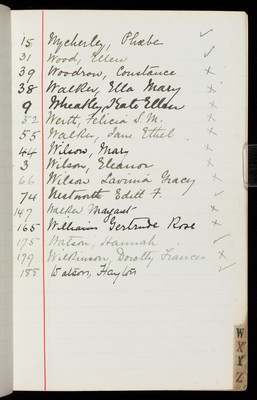 15 Wycherley, Phœbe ✓
31 Wood, Ellen ✓
39 Woodrow, Constance x
38 Walker, Ella Mary x
9 Wheatley, Kate Ellen x
32 Felicia S. M. x
55 Walker, Jane Ethel . x
44 Wilson, Mary x
3 Wilson, Eleanor x
66 Wilson Lavinia Gracy x
74 Edith F. ✓
147 Walker Margaret x
165 Williams Gertrude Rose x
175 Watson, Hannah . ✓
179 Wilkinson, Dorothy Frances x
188 Watson, ✓
W
X
Y
Z